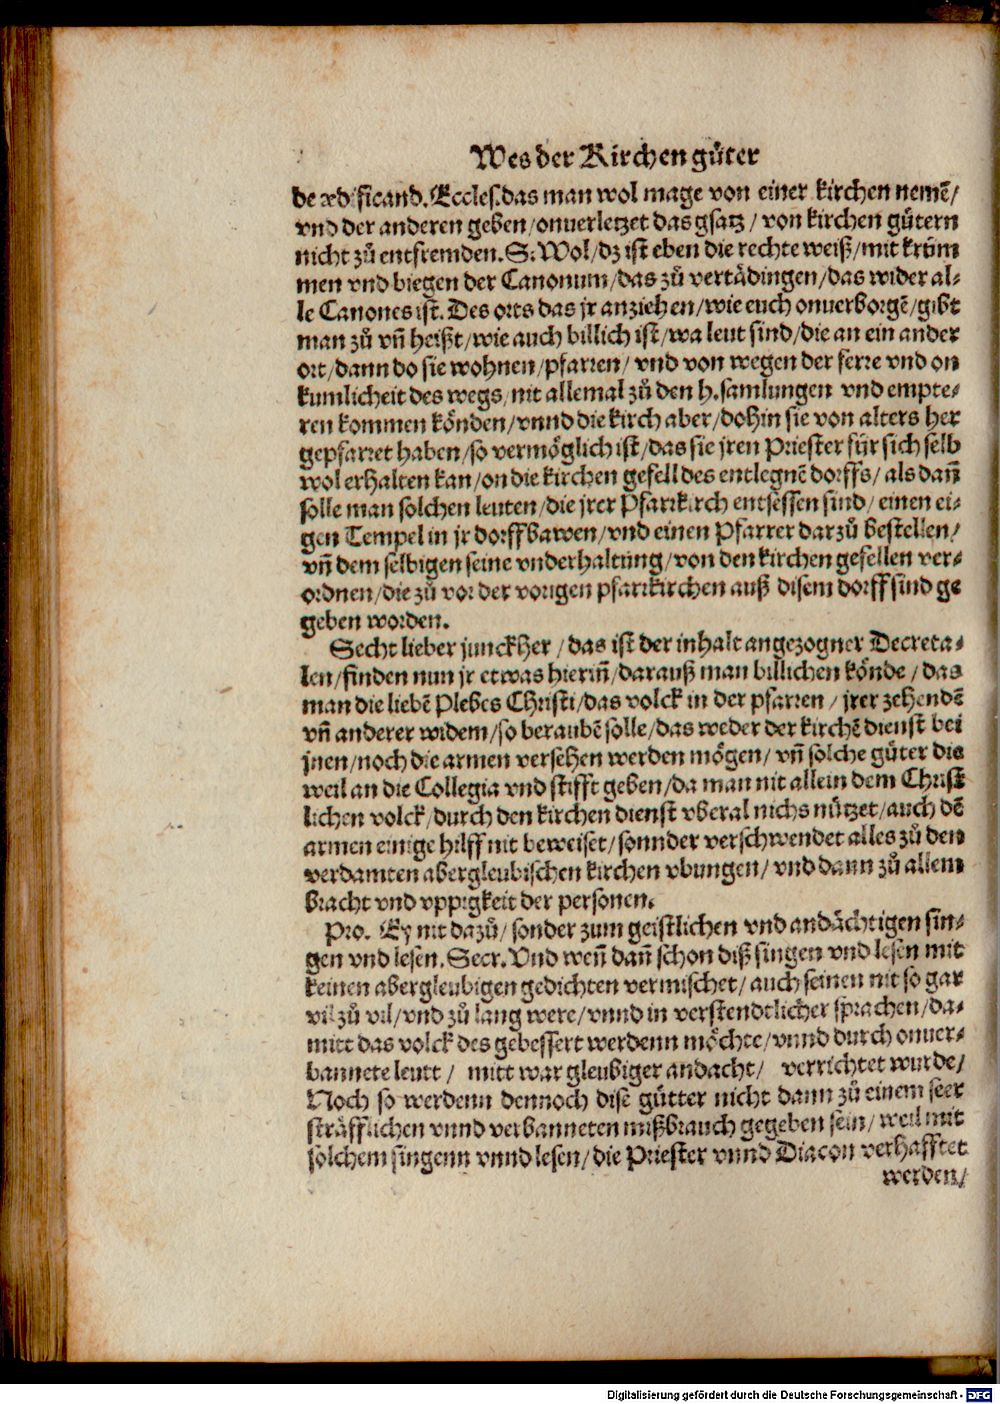 Wes der Kirchen güter
de ædificand. Eccles. das man wol mage von einer kirchen nemē/
vnd der anderen geben/onuerletzet das gsatz/von kirchen gütern
nicht zů entfremden. S: Wol/dz ist eben die rechte weiß/mit krüm
men vnd biegen der Canonum/das zů vertädingen/das wider al-
le Canones ist. Des orts das jr anziehen/wie euch onuerborgē/gibt
man zů vñ heißt/wie auch billich ist/wa leut sind/die an ein ander
ort/dann do sie wohnen/pfarren/vnd von wegen der ferre vnd on
kumlicheit des wegs/nit allemal zů den h. samlungen vnd empte-
ren kommen könden/vnnd die kirch aber/dohin sie von alters her
gepfarret haben/so vermöglich ist/das sie jren Priester für sich selb
wol erhalten kan/on die kirchen gefell des entlegnē dorffs/als dañ
solle man solchen leuten/die jrer Pfarrkirch entsessen sind/einen ei-
gen Tempel in jr dorff bawen/vnd einen Pfarrer darzů bestellen/
vñ dem selbigen seine vnderhaltung/von den kirchen gefellen ver-
ordnen/die zů vor der vorigen pfarrkirchen auß disem dorff sind ge
geben worden.
Secht lieber junckher/das ist der inhalt angezogner Decreta-
len/finden nun jr etwas hieriñ/darauß man billichen könde/das
man die liebē Plebes Christi/das volck in der pfarren/jrer zehendē
vñ anderer widem/so beraubē solle/das weder der kirchē dienst bei
jnen/noch die armen versehen werden mögen/vñ solche güter die
weil an die Collegia vnd stifft geben/da man nit allein dem Christ
lichen volck/durch den kirchen dienst vberal nichs nützet/auch dē
armen einige hilff nit beweiset/sonnder verschwendet alles zů den
verdamten abergleubischen kirchen vbungen/vnd dann zů allem
bracht vnd vppigkeit der personen.
Pro. Ey nit dazů/sonder zum geistlichen vnd andächtigen sin-
gen vnd lesen. Secr. Vnd weñ dañ schon diß singen vnd lesen mit
keinen abergleubigen gedichten vermischet/auch seinen nit so gar
vil zů vil/vnd zů lang were/vnnd in verstendtlicher sprachen/da-
mitt das volck des gebessert werdenn möchte/vnnd durch onuer-
bannete leutt/ mitt war gleubiger andacht/ verrichtet wurde/
Noch so werdenn dennoch disē gütter nicht dann zů einem seer
sträfflichen vnnd verbanneten mißbrauch gegeben sein/weil mit
solchem singenn vnnd lesen/die Priester vnnd Diacon verhafftet
werden/
Digitalisierung gefördert durch die Deutsche Forschungsgemeinschaft - DFG